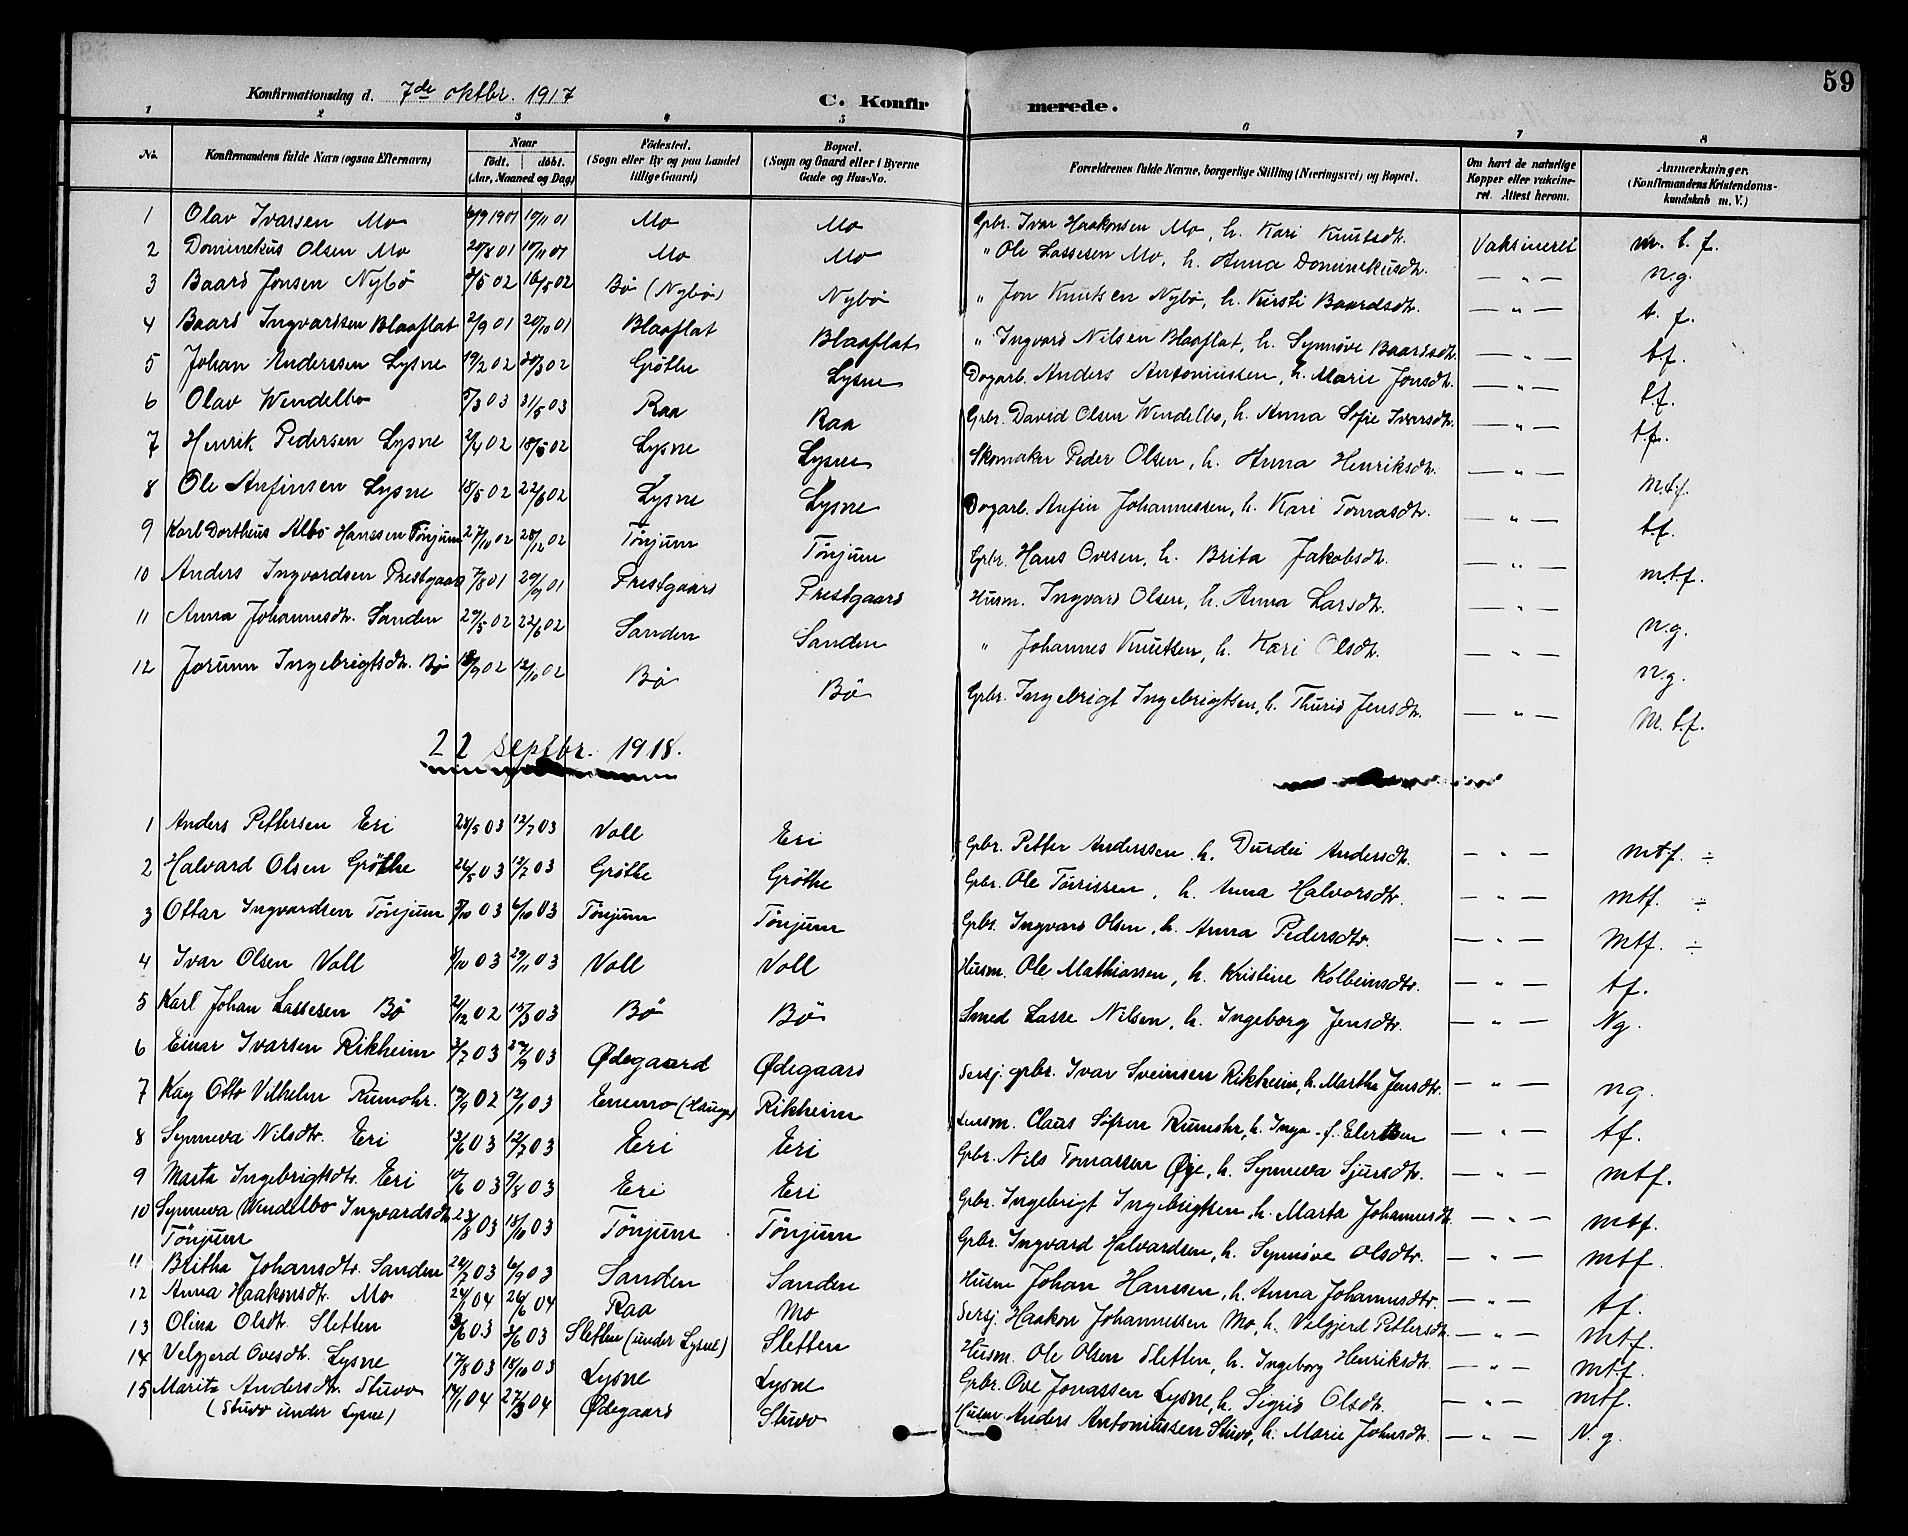 59
Konfirmationsdag d. 7de oktbr. 1917
C. Konfirmerede.
1 2 3 4 5 6 7 8
No.
Konfirmandens fulde Navn (ogsaa Efternavn)
Naar
født. døbt.
(Aar, Maaned og Dag)
Fødested.
(Sogn eller By og paa Landet
tillige Gaard)
Bopæl.
(Sogn og Gaard eller i Byerne
Gade og Hus-No.
Forældrenes fulde Navne, borgerlige Stilling (Næringsvei) og Bopæl.
Om havt de naturlige
Kopper eller vakcine-
ret. Attest herom.
Anmærkninger.
(Konfirmandens Kristendoms-
kundskab m. V.)
1 Olav Ivarsen Mo 6/9 1901 10/11 01 Mo Mo Gbr. Ivar Haakonsen Mo, h. Kari Knutsdtr. Vaksineret m. t. f.
2 Dominekus Olsen Mo 20/8 01 10/11 01 Mo Mo " Ole Lassesen Mo, h. Anna Dominekusdtr. — " — n.g.
3 Baard Jonsen Nybø 3/5 02 16/5 02 Bø (Nybø) Nybø " Jon Knutsen Nybø, h. Kirsti Baardsdtr. — " — t. f.
4 Baard Ingvardsen Blaaflat 2/9 01 20/10 01 Blaaflat Blaaflat " Ingvard Nilsen Blaaflat, h. Synnøve Baardsdtr. — " — t.f.
5 Johan Anderssen Lysne 19/2 02 30/3 02 Grøthe Lysne Dagarb. Anders Antoniussen, h. Marie Jonsdtr. — " — t.f.
6 Olav Wendelbo 5/3 03 31/5 03 Raa Raa Gbr. David Olsen Wendelbo, h. Anna Sofie Ivarsdtr. — " — t.f.
7 Henrik Pedersen Lysne 2/4 02 18/5 02 Lysne Lysne Skomaker Peder Olsen, h. Anna Henriksdtr. — " — m.t.f.
8 Ole Anfinsen Lysne 18/5 02 22/6 02 Lysne Lysne Dagarb. Anfin Johannessen, h. Kari Tomasdtr. — " — t.f.
9 Karl Dortheus Albo Hanssen Tönjum 27/10 02 28/12 02 Tönjum Tönjum Gbr. Hans Ovesen, h. Brita Jakobsdtr. — " — mtf.
10 Anders Ingvardsen Prestgaard 7/8 01 29/9 01 Prestgaard Prestgaard Husm. Ingvard Olsen, h. Anna Larsdtr. — " — n.g.
11 Anna Johannesdtr. Sanden 29/5 02 22/6 02 Sanden Sanden " Johannes Knutsen, h. Kari Olsdtr. — " — n.g.
12 Jorunn Ingebrigtsdtr. Bø 18/9 02 12/10 02 Bø Bø Gbr. Ingebrigt Ingebrigtsen, h. Thurid Jensdtr. — " — M.t.f.
22 septbr. 1918.
1 Anders Pettersen Eri 28/5 03 12/7 03 Voll Eri Gbr. Petter Anderssen h. Durdei Andersdtr. — " — mtf. ÷
2 Halvard Olsen Grøthe 26/5 03 12/7 03 Grøthe Grøthe Gbr. Ole Törrissen, h. Anna Halvorsdtr. — " — mtf. ÷
3 Ottar Ingvardsen Tönjum 3/10 03 6/10 03 Tönjum Tönjum Gbr. Ingvard Olsen, h. Anna Pedersdtr. — " — mtf. ÷
4 Ivar Olsen Voll 8/10 03 29/11 03 Voll Voll Husm. Ole Mathiassen, h. Kristine Kolbeinsdtr. — " — tf.
5 Karl Johan Lassesen Bø 21/12 02 15/3 03 Bø Bø Smed Lasse Nilsen, h. Ingeborg Jensdtr. — " — Ng.
6 Einar Ivarsen Rikheim 3/7 03 27/9 03 Ødegaard Ødegaard Sersj. gbr. Ivar Sveinsen Rikheim, h. Martha Jensdtr. — " — ng.
7 Kay Otto Vilhelm Rumohr. 17/9 02 12/1 03 Enemo (Hauge) Rikheim Lensm. Claus Søfren Rumohr, h. Inga f. Elertsen — " — tf.
8 Synneva Nilsdtr. Eri 13/6 03 12/7 03 Eri Eri Gbr. Nils Tomassen Øye, h. Synneva Sjursdtr. — " — mtf.
9 Marta Ingebrigtsdtr. Eri 10/6 03 9/8 03 Eri Eri Gbr. Ingebrigt Ingebrigtsen, h. Marta Johannesdtr. — " — mtf.
10 Synneva Wendelbo Ingvardsdtr. 23/8 03 18/10 03 Tönjum Tönjum Gbr. Ingvard Halvardsen, h. Synnøve Olsdtr. — " — mtf
Tönjum
11 Britha Johansdtr. Sanden 28/7 03 6/9 03 Sanden Sanden Husm Johan Hanssen, h. Anna Johannesdtr. — " — tf.
12 Anna Haakonsdtr. Mo 24/1 04 26/6 04 Raa Mo Sersj. Haakon Johannessen Mo, h. Velgjerd Pettersdtr. — " — mtf.
13 Olina Olsdtr. Sletten 3/6 03 3/6 03 Sletten (under Lysne) Sletten Husm. Ole Olsen Sletten, h. Ingeborg Henriksdtr. — " — mtf.
14 Velgjerd Ovesdtr. Lysne 17/8 03 18/10 03 Lysne Lysne Gbr. Ove Jonassen Lysne, h. Sigrid Olsdtr. — " — mtf.
15 Marita Andersdtr. Stuvo 17/1 04 27/3 04 Ødegaard Stuvo Husm. Anders Antoniussen Stuvo, h. Marie Johnsdtr. — " — N.g.
(Stuvo under Lysne)